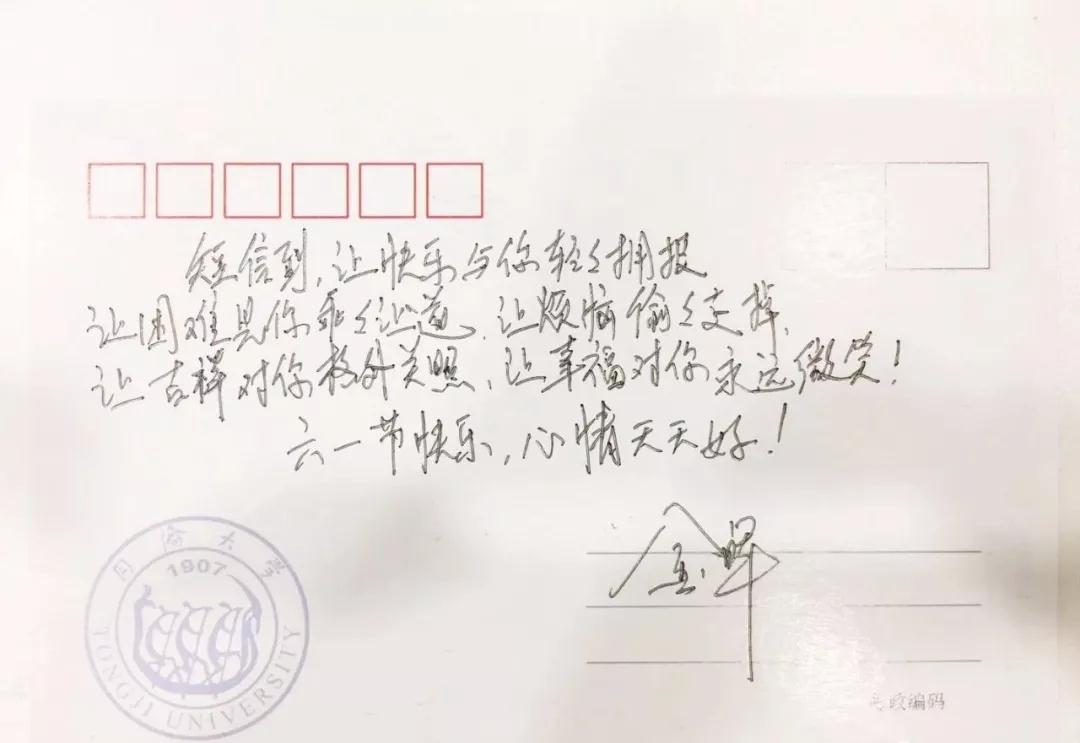 短信到,让快乐与你轻轻拥抱
让困难见你乖乖让道,让烦恼偷偷走掉,
让吉祥对你格外关照,让幸福对你永远微笑!
六一节快乐,心情天天好!
同济大学
1907
TONGJI UNIVERSITY
政编码